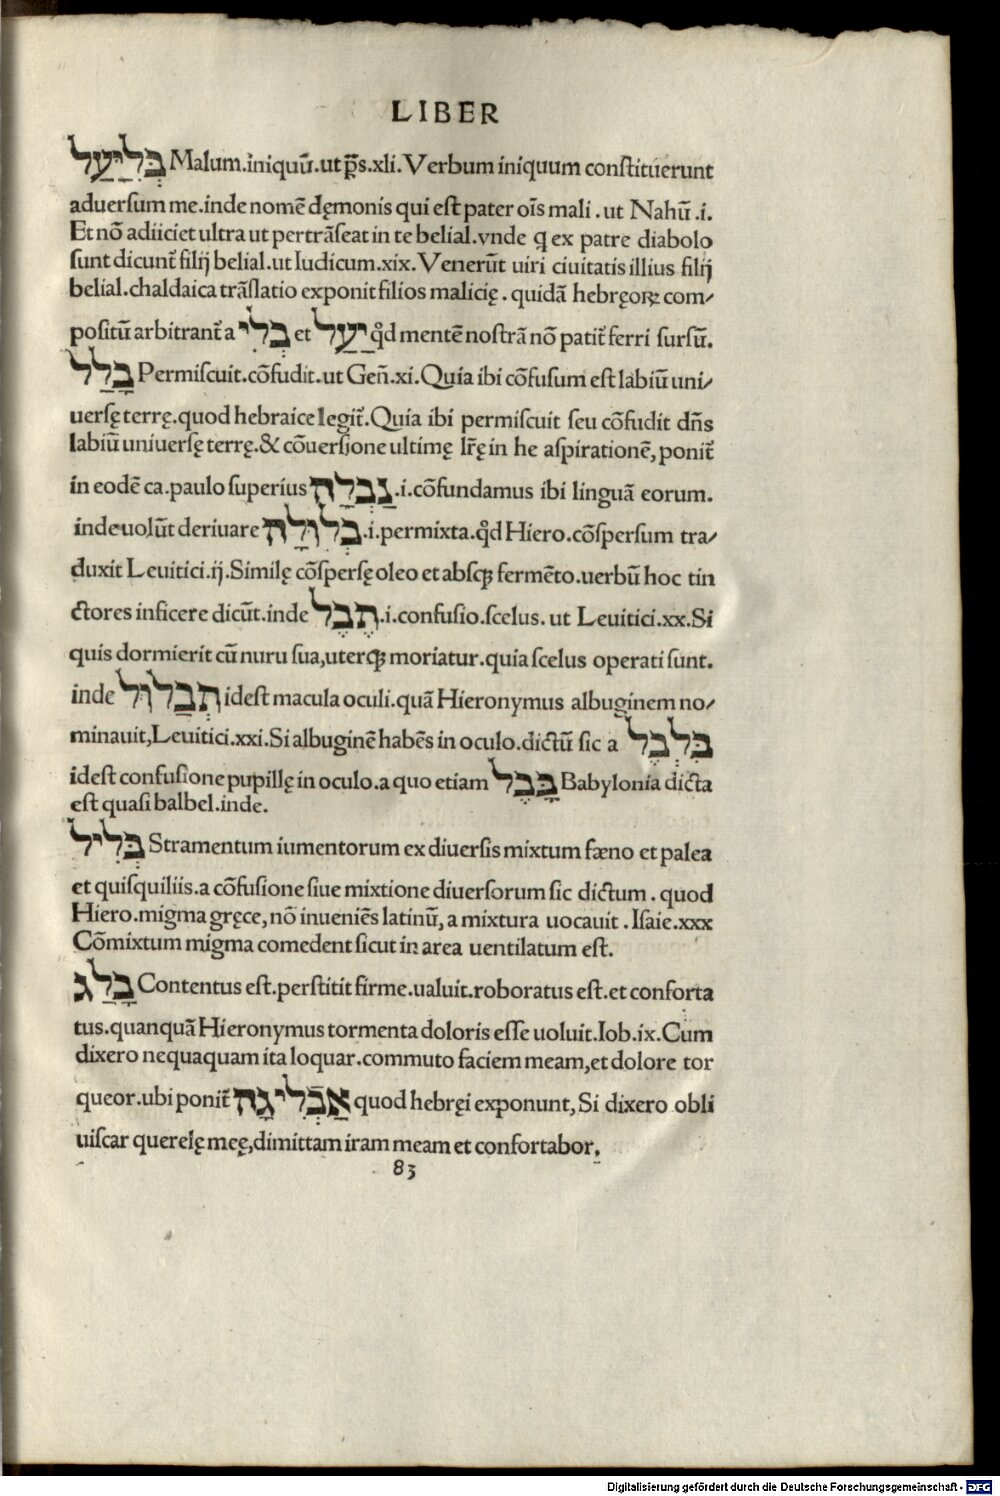 LIBER
בְּלִיַּעַל Malum.iniquū.ut p̄s.xli.Verbum iniquum conſtituerunt
aduerſum me.inde nomē dęmonis qui eſt pater oīs mali.ut Nahū.i.
Et nō adiiciet ultra ut pertrāſeat in te belial.vnde ꝗ ex patre diabolo
ſunt dicunt̄ filij belial.ut Iudicum.xix.Venerūt uiri ciuitatis illius filij
belial.chaldaica trāſlatio exponit filios malicię.quidā hebręoꝝ com⸗
poſitū arbitrant̄ a בְּלִי et יַעַל qđ mentē noſtrā nō patit̄ ferri ſurſū.
בָּלַל Permiſcuit.cōfudit.ut Geñ.xi.Quia ibi cōfuſum eſt labiū uni⸗
uerſę terrę.quod hebraice legit̄.Quia ibi permiſcuit ſeu cōfudit dñs
labiū uniuerſę terrę.& cōuerſione ultimę lr̄ę in he aſpirationē, ponit̄
in eodē ca.paulo ſuperius נָבְלָה.i.cōfundamus ibi linguā eorum.
inde uolūt deriuare בְּלוּלָה.i.permixta.qđ Hiero.cōſperſum tra⸗
duxit Leuitici.ij.Similę cōſperſę oleo et abſqꝫ fermēto.uerbū hoc tin
ctores inficere dicūt.inde תֶבֶל.i.confuſio.ſcelus.ut Leuitici.xx.Si
quis dormierit cū nuru ſua,uterqꝫ moriatur.quia ſcelus operati ſunt.
inde תְּבַלּוּל ideſt macula oculi.quā Hieronymus albuginem no⸗
minauit,Leuitici.xxi.Si albuginē habēs in oculo.dictū ſic a בִּלְבֶּל
ideſt confuſione pupillę in oculo.a quo etiam בָּבֶל Babylonia dicta
eſt quaſi balbel.inde.
בְּלִיל Stramentum iumentorum ex diuerſis mixtum fæno et palea
et quiſquiliis.a cōfuſione ſiue mixtione diuerſorum ſic dictum.quod
Hiero.migma gręce,nō inueniēs latinū,a mixtura uocauit.Iſaie.xxx
Cōmixtum migma comedent ſicut in area uentilatum eſt.
בָּלַג Contentus eſt.perſtitit firme.ualuit.roboratus eſt.et conforta
tus.quanquā Hieronymus tormenta doloris eſſe uoluit.Iob.ix.Cum
dixero nequaquam ita loquar.commuto faciem meam,et dolore tor
queor.ubi ponit̄ אַבְלִיגָה quod hebręi exponunt,Si dixero obli
uiſcar querelę meę,dimittam iram meam et confortabor.
83
Digitalisierung gefördert durch die Deutsche Forschungsgemeinschaft - DFG